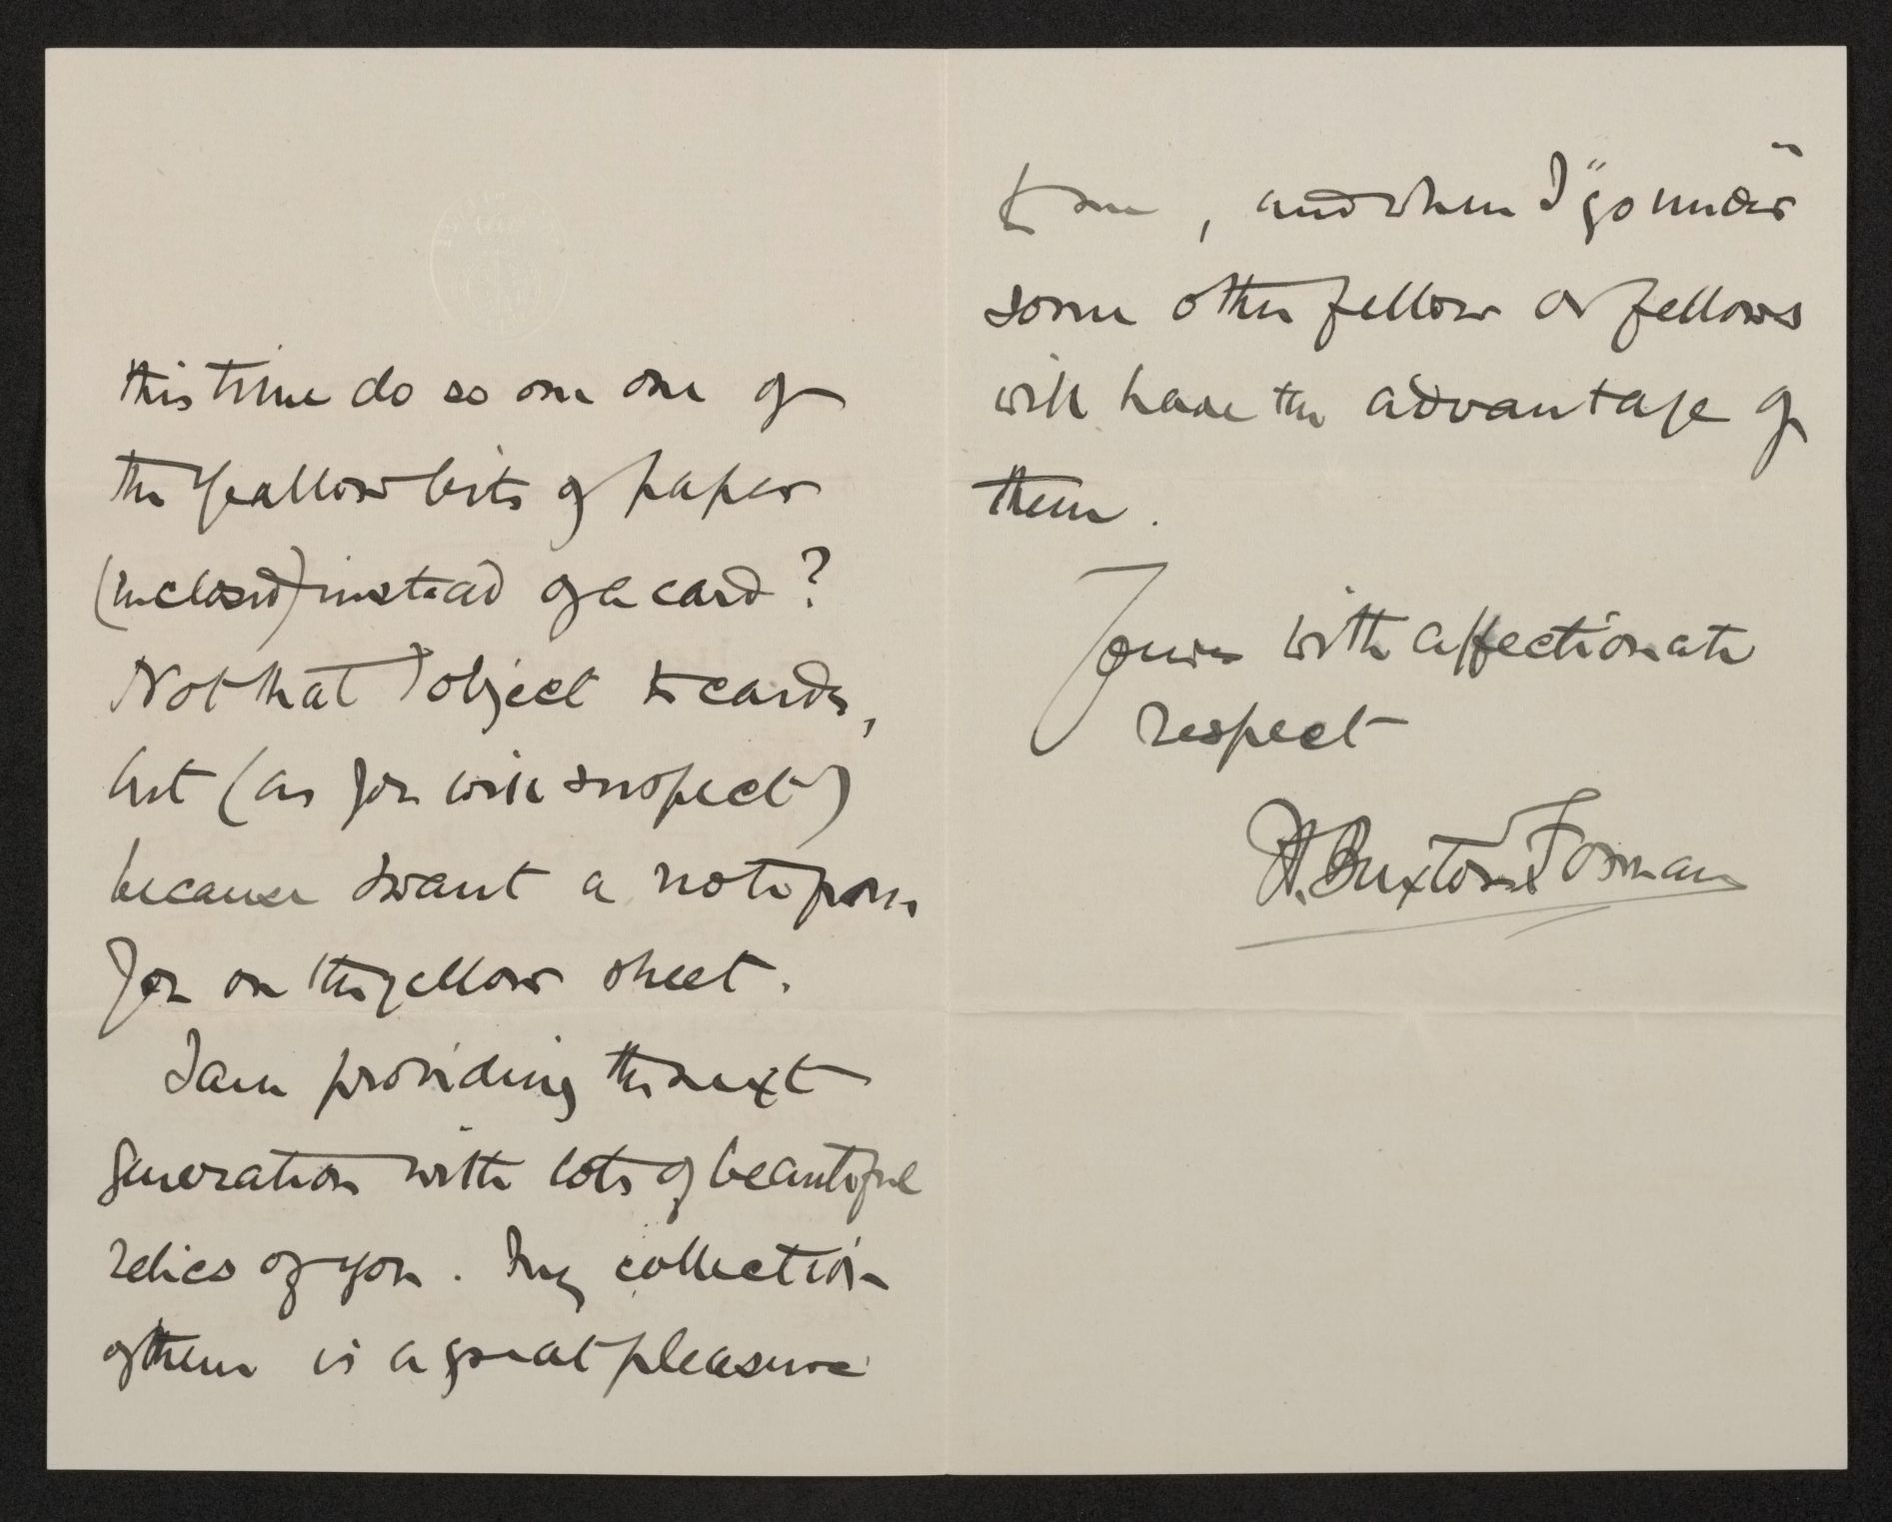 this time do so on one of
the yellow bits of paper
(inclosed) instead of a card?
Not that I object to cards,
but (as you will suspect)
because I want a note from
you on the yellow sheet.
I am providing the next
generation with lots of beautiful
relics of you. My collection
of them is a great pleasure
to me, and when I "go under"
some other fellow or fellows
will have the advantage of
them.
Yours with affectionate
respect
H. Buxton Forman